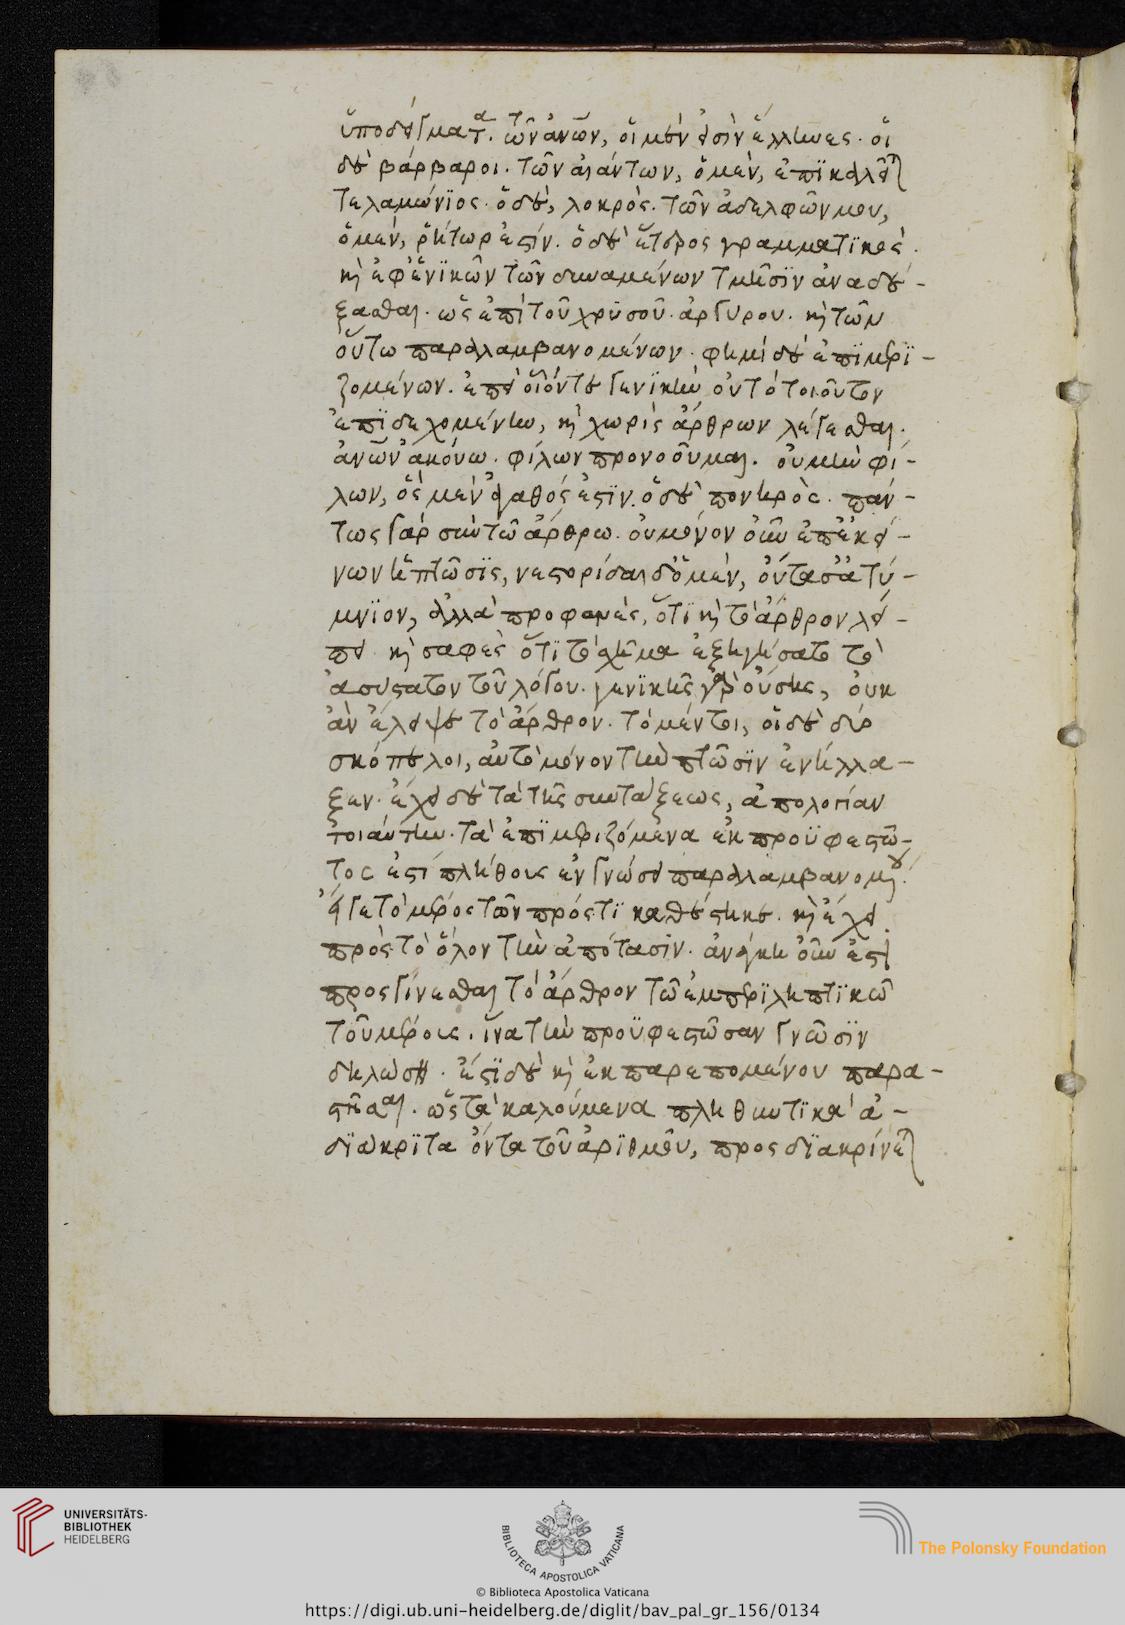 ὑποδείγματα. τῶν ἀνῶν, οἱ μέν εἰσὶν ἕλληνες. οἱ
δὲ βάρβαροι. τῶν αἰάντων, ὁ μὲν, ἐπϊκαλεῖ
τελαμώνϊος. ὁ δὲ, λοκρὸς. τῶν ἀδελφῶν μου,
ὁ μὲν, ῥήτωρ ἐστίν. ὁ δὲ ἕτερος γραμματϊκὸς.
κὴ ἐφ ἑνϊκῶν τῶν δυναμένων τμῆσϊν ἀναδέ-
ξασθαι. ὡς ἐπὶ τοῦ χρϋσοῦ. ἀργύρου. κὴ τῶν
οὕτω παραλαμβανομένων. φημὶ δὲ ἐπϊμερϊ-
ζομένων. ἐπεὶ οἷόντε γενϊκὴν οὐ τὸ τοιοῦτον
ἐπϊδεχομένην, κὴ χωρὶς ἄρθρων λέγεσθαι.
ἀνῶν ἀκούω. φίλων προνοοῦμαι. οὐ μὴν φί-
λων, ὃς μὲν ἀγαθός ἐστϊν. ὃς δὲ πονηρὸς. πάν-
τως γὰρ σὺν τῶ ἄρθρω. οὐ μόνον οὖν ἐπ ἐκεί-
νων ἡ πτῶσϊς, νεστορίδαι δ ὁ μὲν, οὔτασ ἀτύ-
μνϊον, ἀλλὰ προφανὲς, ὅτϊ κὴ τὸ ἄρθρον λεί-
πει κὴ σαφὲς ὅτϊ τὸ σχῆμα ἐξηγήσατο τὸ
ἀσύστατον τοῦ λόγου. γενϊκῆς γὰρ οὔσης, οὐκ
ἂν ἔλειψε τὸ ἄρθρον. τὸ μέντοι, οἱ δὲ δύο
σκόπελοι, αὐτὸ μόνον τὴν πτῶσϊν ἐνήλλα-
ξεν. ἔχει δὲ τὰ τῆς συντάξεως, ἀπολογίαν
τοιαύτην. τὰ ἐπϊμεριζόμενα ἐκ προϋφεστῶ-
τος ἐστὶ πλήθους ἐν γνώσει παραλαμβανομένου.
εἴγε τὸ μέρος τῶν πρός τϊ καθέστηκε. κὴ ἔχει
πρὸς τὸ ὅλον τὴν ἀπότασϊν. ἀνάγκη οὖν ἐστὶ
προσγίνεσθαι τὸ ἄρθρον τῶ ἐμπερϊληπτϊκῶ
τοῦ μέρους. ἵνα τὴν προϋφεστῶσαν γνῶσϊν
δηλώση. ἔστϊ δὲ κὴ ἐκ παρεπομένου παρα-
στῆσαι. ὡς τὰ καλούμενα πληθυντϊκὰ ἀ-
δϊάκρϊτα ὄντα τοῦ ἀρϊθμοῦ, προσδϊακρίνε
UNIVERSITÄTS-
BIBLIOTHEK
HEIDELBERG
BIBLIOTECA APOSTOLICA VATICANA
The Polonsky Foundation
© Biblioteca Apostolica Vaticana
https://digi.ub.uni-heidelberg.de/diglit/bav_pal_gr_156/0134